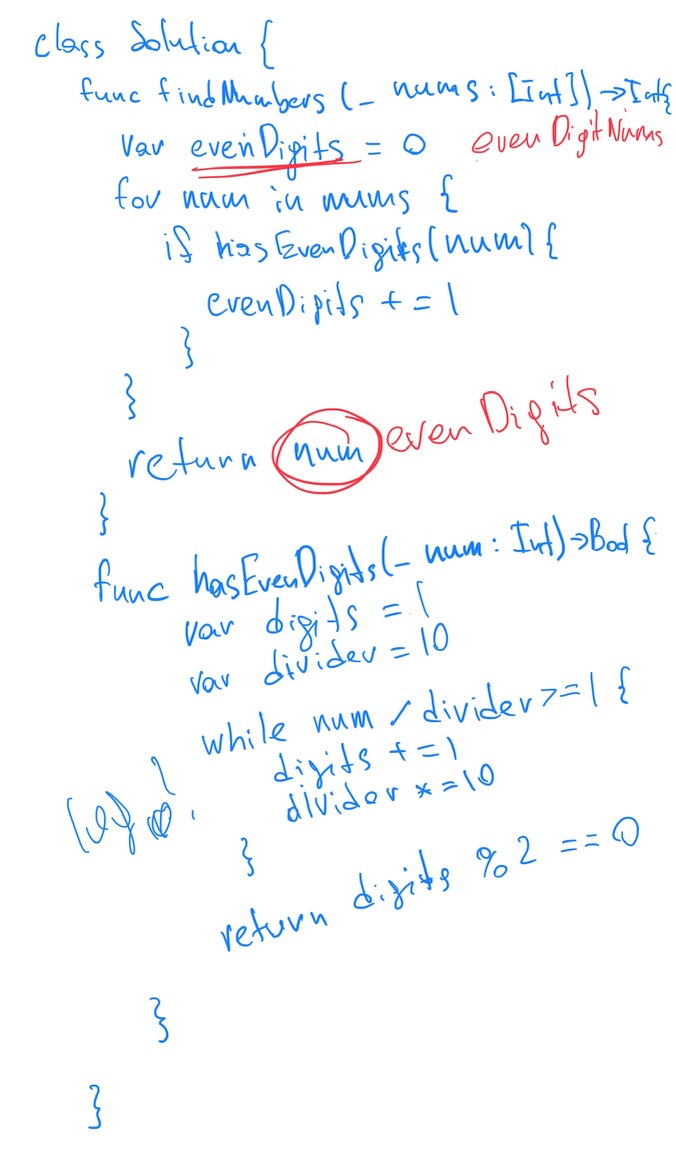 class Solution {
func findNumbers (_ nums : [Int]) -> Int {
var evenDigits = 0 evenDigitNums
for num in nums {
if hasEvenDigits(num) {
evenDigits += 1
}
}
return num evenDigits
}
func hasEvenDigits(_ num : Int) -> Bool {
var digits = 1
var divider = 10
while num / divider >= 1 {
digits += 1
divider *= 10
}
return digits % 2 == 0
}
}